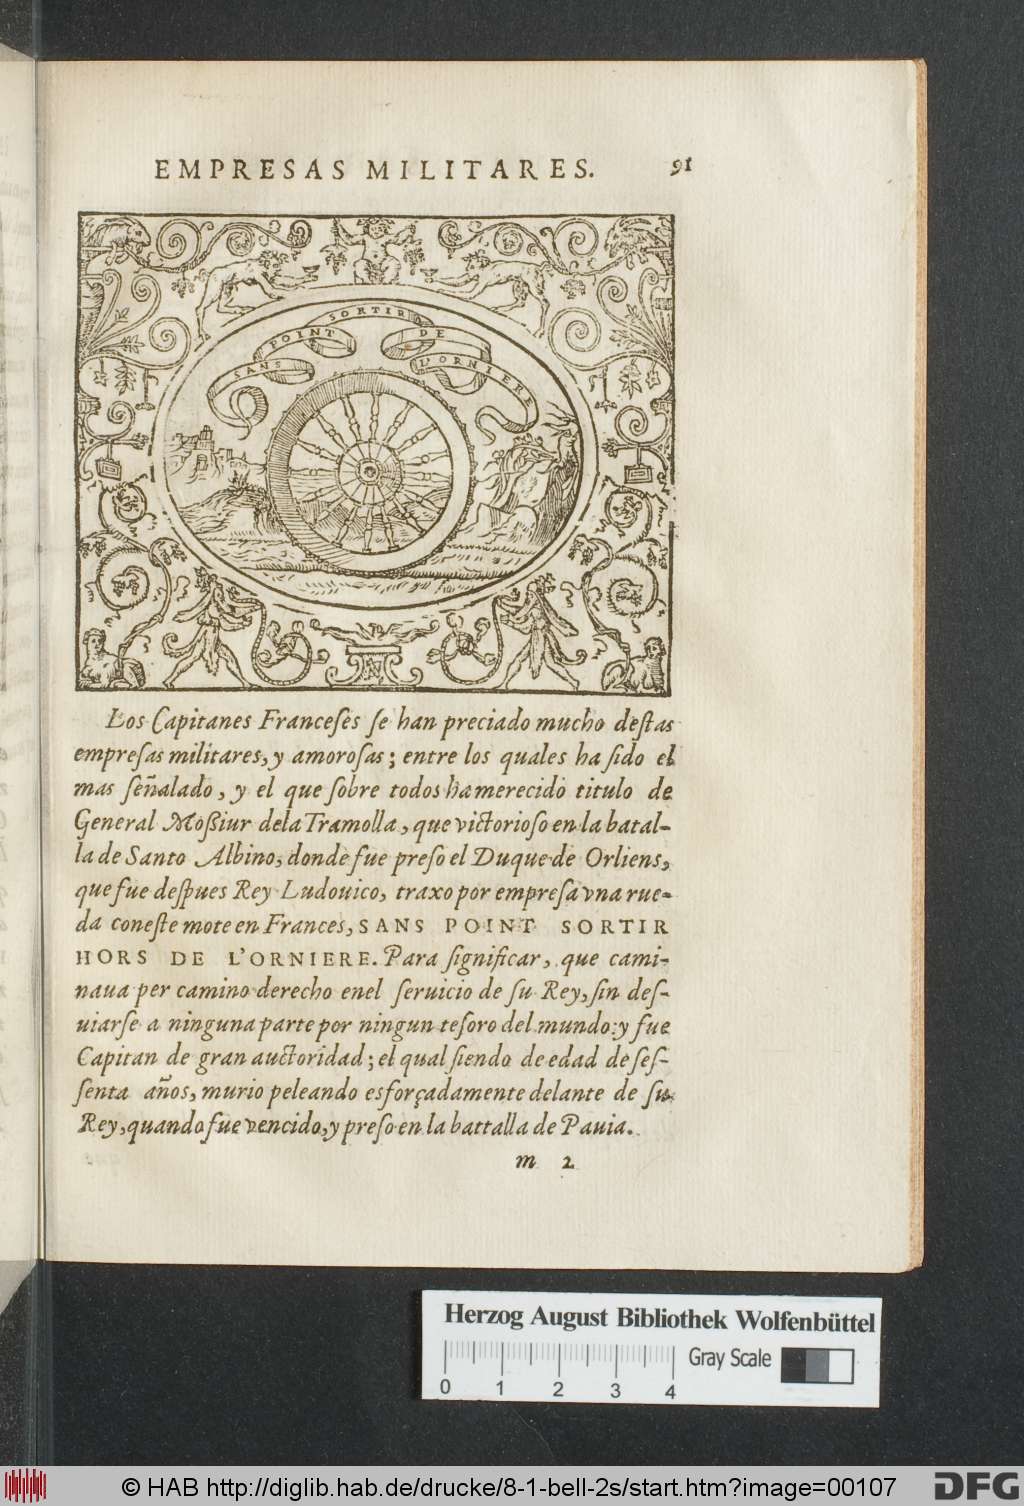 EMPRESAS MILITARES. 91
SANS POINT SORTIR DE L'ORNIERE
Los Capitanes Franceſes ſe han preciado mucho deſtas
empreſas militares, y amoroſas; entre los quales ha ſido el
mas ſeñalado, y el que ſobre todos ha merecido titulo de
General Moßiur dela Tramolla, que victorioſo en la batal-
la de Santo Albino, donde fue preſo el Duque de Orliens,
que fue deſpues Rey Ludouico, traxo por empreſa vna rue-
da con eſte mote en Frances, SANS POINT SORTIR
HORS DE L'ORNIERE. Para ſignificar, que cami-
naua per camino derecho enel ſeruicio de ſu Rey, ſin deſ-
uiarſe a ninguna parte por ningun teſoro del mundo: y fue
Capitan de gran auctoridad; el qual ſiendo de edad de ſeſ-
ſenta años, murio peleando esforçadamente delante de ſu
Rey, quando fue vencido, y preſo en la battalla de Pauia.
m 2
Herzog August Bibliothek Wolfenbüttel
Gray Scale
0 1 2 3 4
© HAB http://diglib.hab.de/drucke/8-1-bell-2s/start.htm?image=00107
DFG